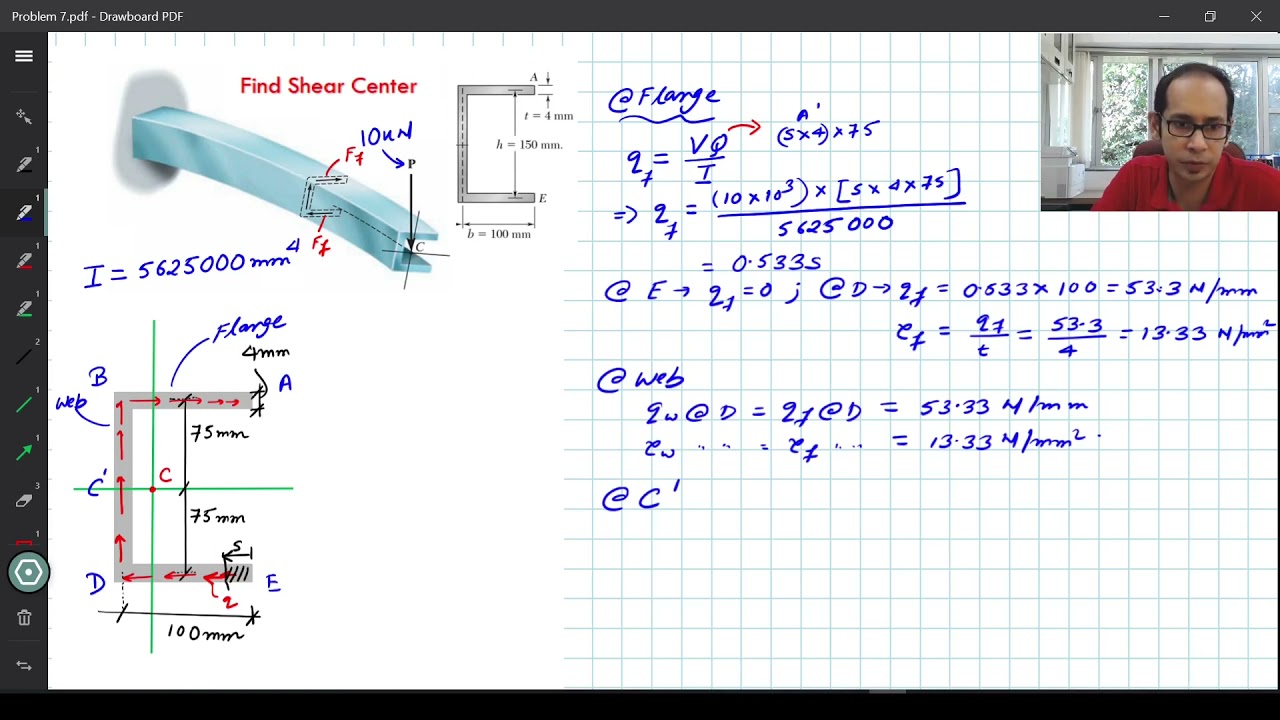 Problem 7.pdf - Drawboard PDF
Find Shear Center
10kN
P
Ff
Ff
C
A
t = 4 mm
h = 150 mm.
E
b = 100 mm
I = 5625000 mm⁴
Flange
4mm
B
A
Web
75mm
C'
C
75mm
s
D
E
q
100mm
@ Flange
q_f = VQ/I → A' (s×4)×75
⇒ q_f = (10×10³) × [s×4×75] / 5625000
= 0.533s
@ E → q_f = 0 ; @ D → q_f = 0.533×100 = 53.3 N/mm
τ_f = q_f/t = 53.3/4 = 13.33 N/mm²
@ Web
q_w @ D = q_f @ D = 53.33 N/mm
τ_w " " = τ_f " " = 13.33 N/mm².
@ C'